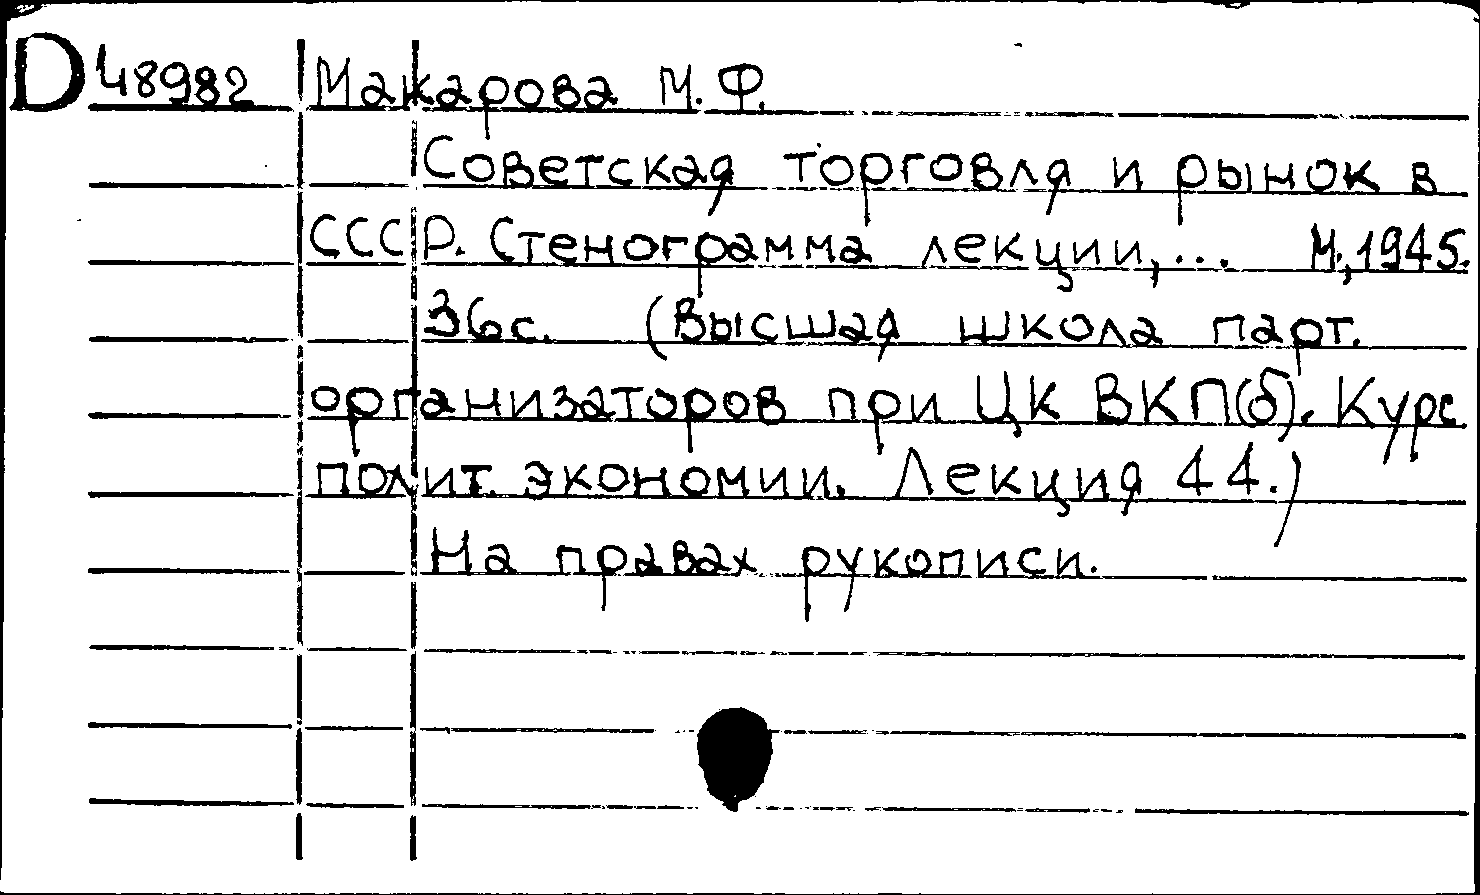 D 48982 Макарова М. Ф.
Советская торговля и рынок в
СССР. Стенограмма лекции,... М., 1945.
36с. (Высшая школа парт.
организаторов при ЦК ВКП(б). Курс
полит. экономии. Лекция 44.)
На правах рукописи.